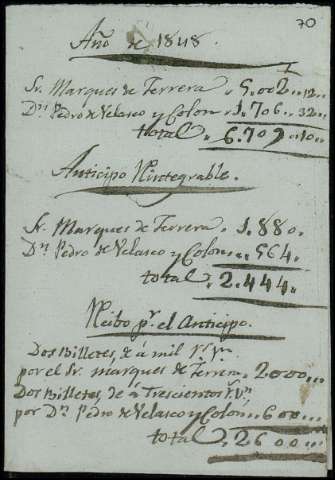 70
Año de 1848.
Sr. Marques de Ferrera. 5.002..12..
Dn. Pedro de Velasco y Colon. 1.706..32..
total. 6.709..10..
Anticipo Rintegrable.
Sr. Marques de Ferrera. 1.880.
Dn. Pedro de Velasco y Colon. 564.
total. 2.444.
Recibo pr. el Anticipo.
Dos Billetes, de á mil rs. vn.
por el Sr. marques de Ferrera. 2000..
Dos Billetes de á Trescientos rs. vn.
por Dn. Pedro de Velasco y Colon. 600..
total. 2600..